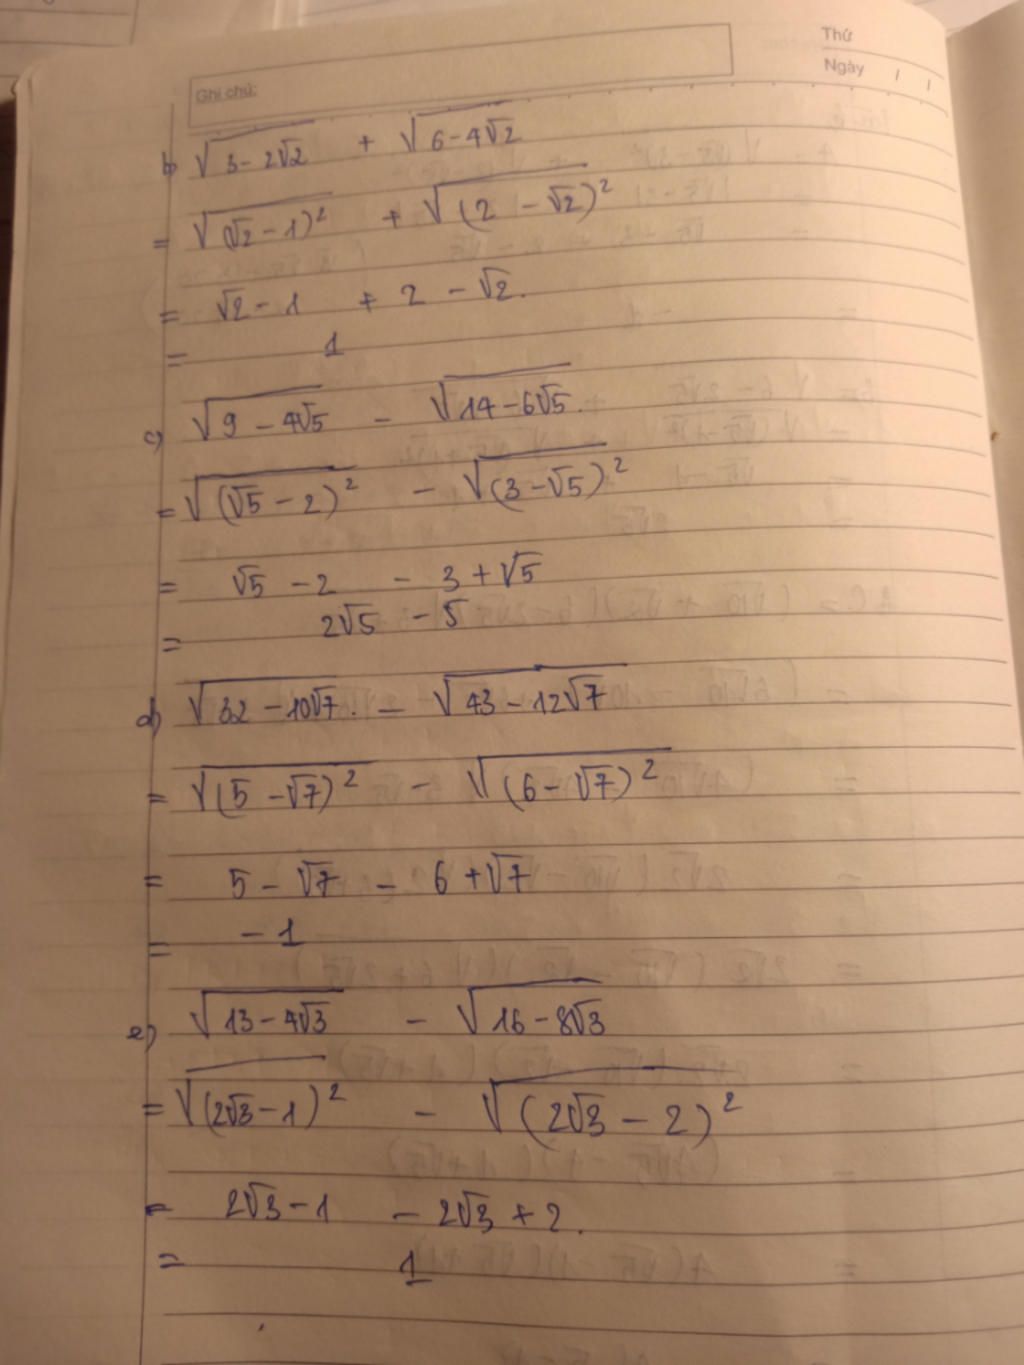 Thứ
Ngày / /
Ghi chú:
b) √(3 - 2√2) + √(6 - 4√2)
= √((√2 - 1)²) + √((2 - √2)²)
= √2 - 1 + 2 - √2.
= 1
c) √(9 - 4√5) - √(14 - 6√5).
= √((√5 - 2)²) - √((3 - √5)²)
= √5 - 2 - 3 + √5
= 2√5 - 5
d) √(32 - 10√7). - √(43 - 12√7)
= √((5 - √7)²) - √((6 - √7)²)
= 5 - √7 - 6 + √7
= - 1
e) √(13 - 4√3) - √(16 - 8√3)
= √((2√3 - 1)²) - √((2√3 - 2)²)
= 2√3 - 1 - 2√3 + 2.
= 1